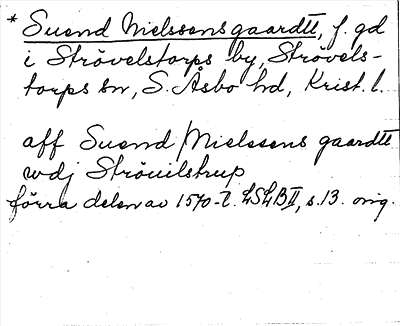 * Suend Nielssens gaardtt, f. gd
i Strövelstorps by, Strövels-
torps sn, S. Åsbo hd, Krist. l.
aff Suend Nielssens gaardtt
wdj Ströuilstrup
förra delen av 1570-t. LSLB II, s. 13. orig.